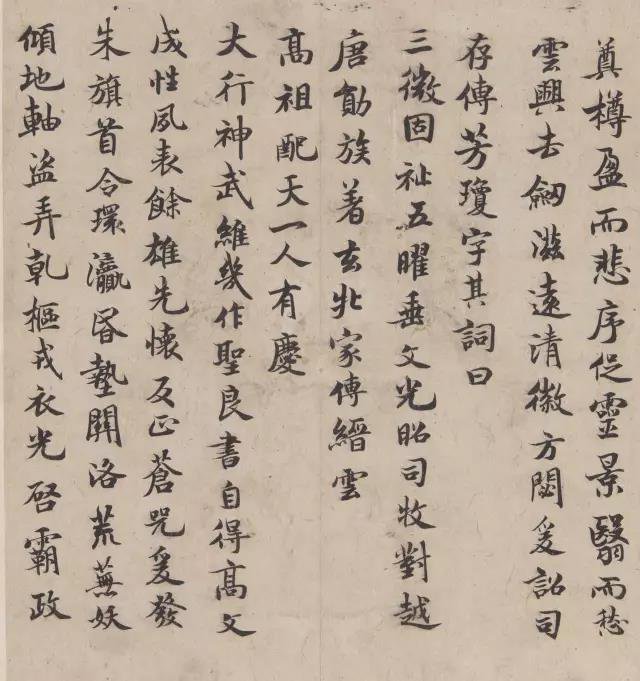 奠樽盈而悲序促靈景翳而愁
雲興去劒滋遠清徽方閟爰詔司
存傳芳瓊字其詞曰
三微固祉五曜垂文光昭司牧對越
唐勛族著玄牝家傳縉雲
高祖配天一人有慶
大行神武維幾作聖良書自得高文
成性夙表餘雄先懷反正蒼兕爰發
朱旗首令環瀛昏墊關洛荒蕪妖
傾地軸盜弄乹樞戎衣光啓霸政